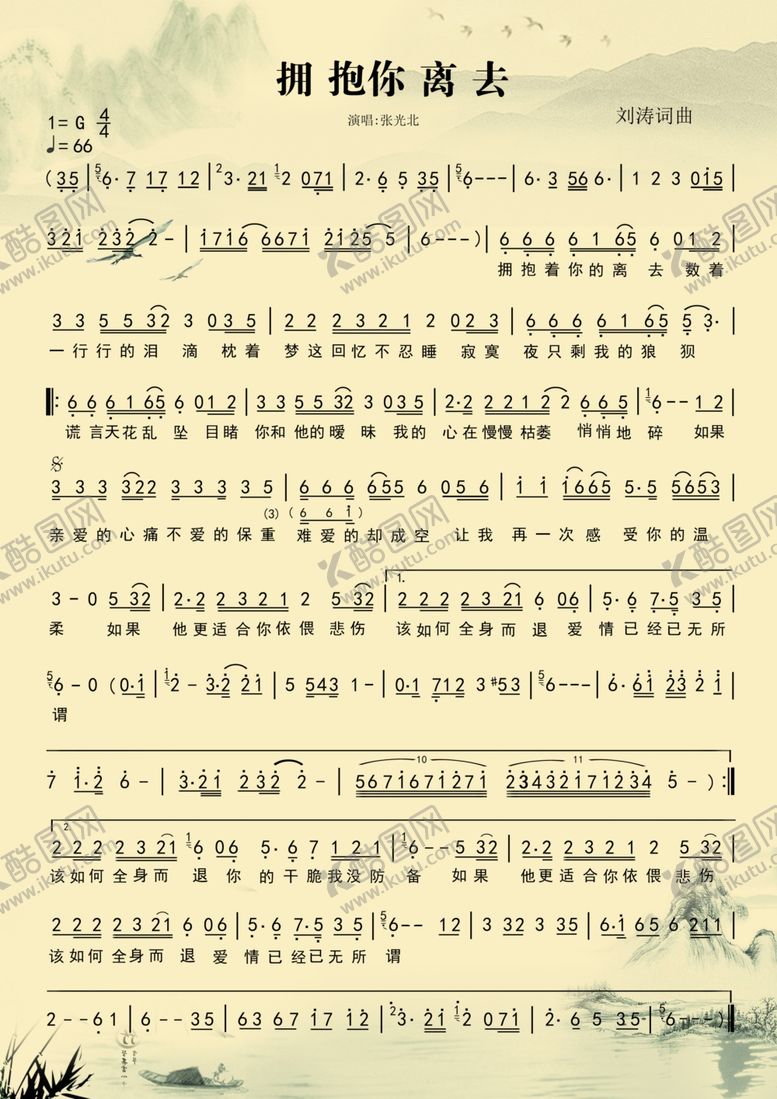 拥抱你离去
1=G 4/4
♩=66
演唱:张光北
刘涛词曲
(35|⁵6· 7 17 12|²3· 21 ¹2 071|2· 6 5 35|⁵6---|6· 3 56 6·|1 2 3 015|
321 232 2-|1716 6671 2125 5|6---)|6 6 6 6 1 65 6 012|
拥抱着你的离去数着
3 3 5 5 32 3 035|2 2 2 3 2 1 2 023|6 6 6 6 1 65 5 3·|
一行行的泪滴枕着梦这回忆不忍睡寂寞夜只剩我的狼狈
‖:6 6 6 1 65 6 012|33 55 32 3 335|2·2 221 2 2 665|¹6-- 12|
谎言天花乱坠目睹你和他的暧昧我的心在慢慢枯萎悄悄地碎如果
3 3 3 322 3 3 3 35|6 6 6 655 6 056|1 1 1665 5·5 5653|
(3)(6 6 1)
亲爱的心痛不爱的保重难爱的却成空让我再一次感受你的温
3-0 5 32|2·2 2 3 2 1 2 5 32|1.2 2 2 2 3 21 6 06|5·6 7·5 3 5|
柔如果他更适合你依偎悲伤该如何全身而退爱情已经已无所
⁵6-0 (0·1|¹2- 3·2 21|5 543 1-|0·1 712 3 #53|⁵6---|6· 61 23 2 1|
谓
7 1·2 6-|3·21 232 2-|10 5671671271 11 23432171234 5-):‖
2.
2 2 2 2 3 21 ¹6 06 5·6 7 121|¹6-- 5 32|2·2 2 3 2 1 2 5 32|
该如何全身而退你的干脆我没防备如果他更适合你依偎悲伤
2 2 2 2 3 21 6 06|5·6 7·5 35|⁵6-- 12|3 32 3 35|6·1 65 6 211|
该如何全身而退爱情已经已无所谓
2--61|6--35|63 13 216 12|²3· 21 ¹2 071|2· 6 5 35|⁵6---)|
酷图网
www.ikutu.com